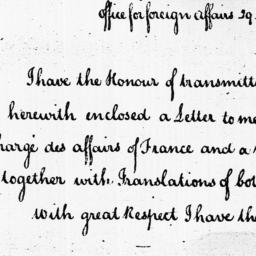 Office for foreign Affairs 29
I have the Honour of transmitt
herewith enclosed a Letter to me
Chargé des affairs of France and a
together with Translations of bot
with great Respect I have the